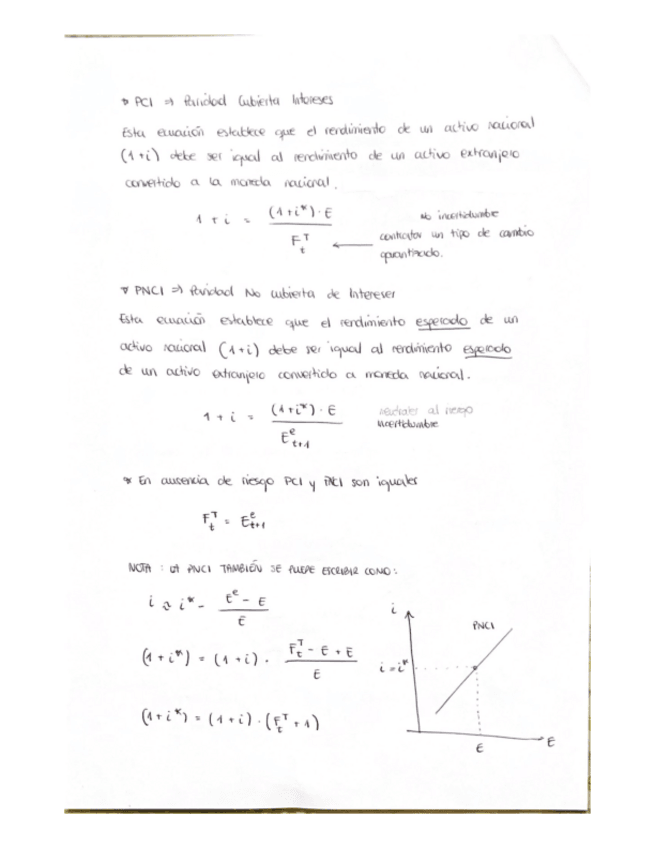 PCI ⇒ Paridad Cubierta Intereses
Esta ecuación establece que el rendimiento de un activo nacional
(1+i) debe ser igual al rendimiento de un activo extranjero
convertido a la moneda nacional.
1 + i = (1+i*)·E / F_t^T
No incertidumbre
contratar un tipo de cambio
garantizado.
PNCI ⇒ Paridad No cubierta de Intereses
Esta ecuación establece que el rendimiento esperado de un
activo nacional (1+i) debe ser igual al rendimiento esperado
de un activo extranjero convertido a moneda nacional.
1 + i = (1+i*)·E / E^e_t+1
neutrales al riesgo
incertidumbre
* En ausencia de riesgo PCI y PNCI son iguales
F_t^T = E^e_t+1
NOTA : LA PNCI TAMBIÉN SE PUEDE ESCRIBIR COMO:
i ≈ i* - E^e - E / E
(1 + i*) = (1+i) · F_t^T - E + E / E
(1+i*) = (1+i) · (F_t^T + 1)
i
PNCI
i=i*
E
E